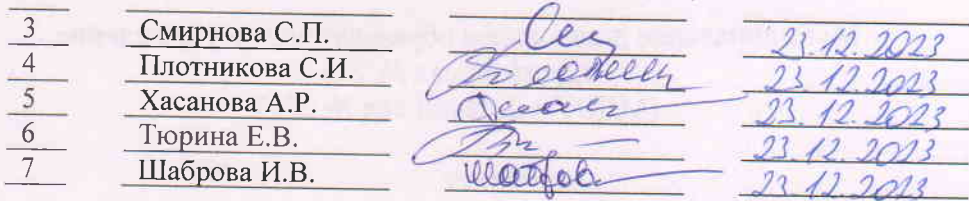 3 Смирнова С.П. 23.12.2023
4 Плотникова С.И. 23.12.2023
5 Хасанова А.Р. 23.12.2023
6 Тюрина Е.В. 23.12.2023
7 Шаброва И.В. 23.12.2023